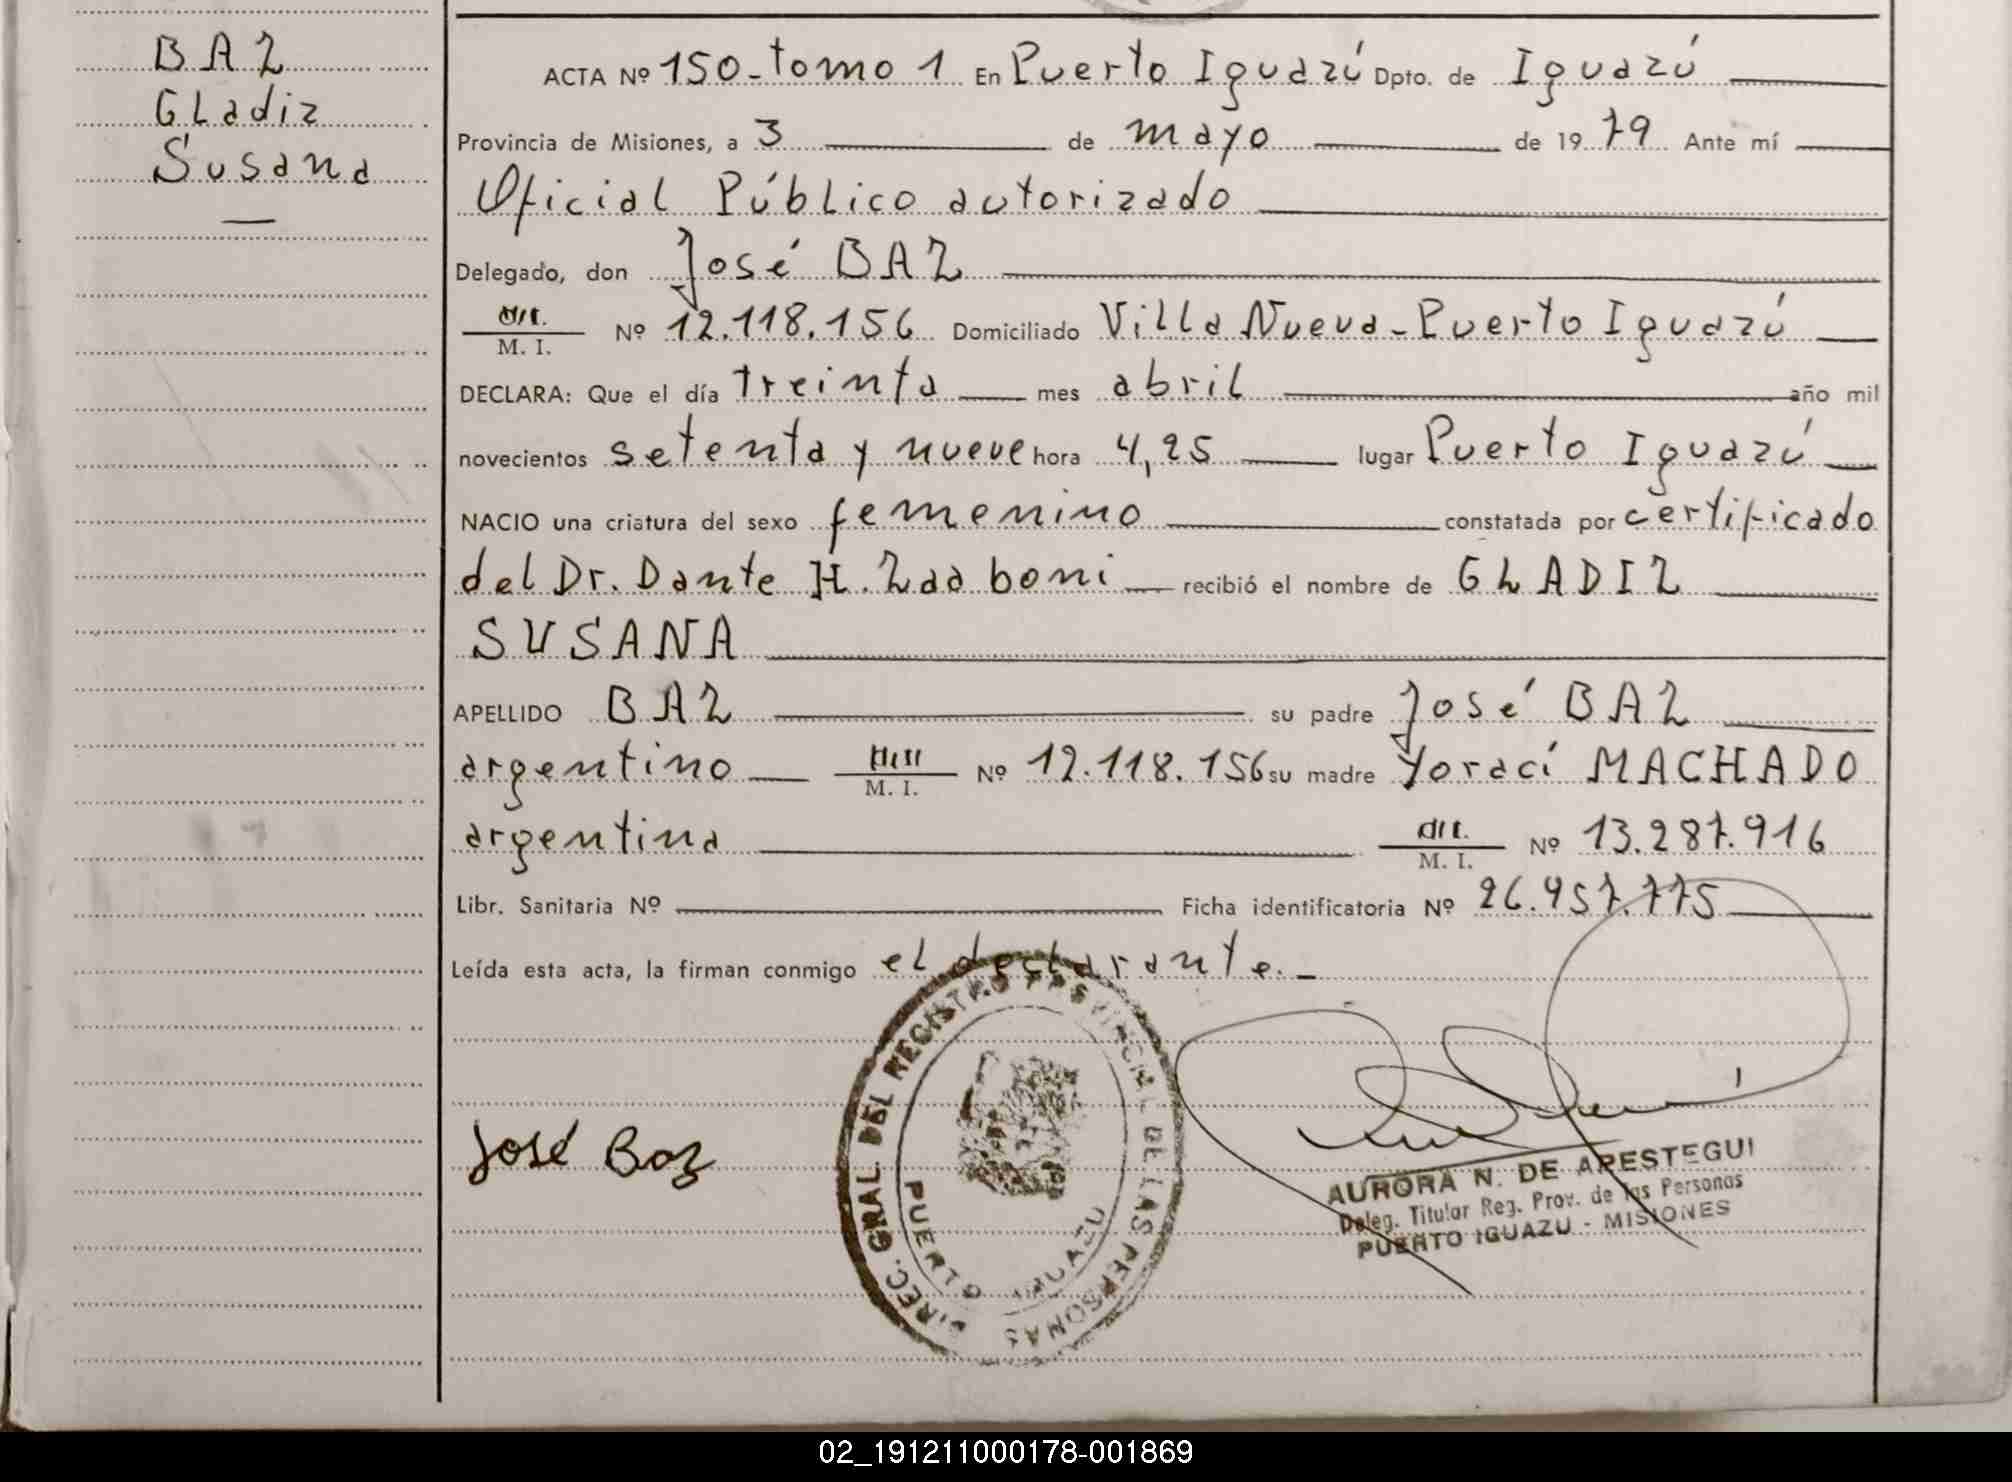 BAZ
Gladiz
Susana
ACTA Nº 150 - tomo 1 En Puerto Iguazú Dpto. de Iguazú
Provincia de Misiones, a 3 de mayo de 1979 Ante mí
Oficial Público autorizado
Delegado, don José BAZ
M. I. Nº 12.118.156 Domiciliado Villa Nueva - Puerto Iguazú
DECLARA: Que el día treinta mes abril año mil
novecientos setenta y nueve hora 4,25 lugar Puerto Iguazú
NACIO una criatura del sexo femenino constatada por certificado
del Dr. Dante H. Zaaboni recibió el nombre de GLADIZ
SUSANA
APELLIDO BAZ su padre José BAZ
argentino M. I. Nº 12.118.156 su madre Yoraci MACHADO
argentina M. I. Nº 13.287.916
Libr. Sanitaria Nº Ficha identificatoria Nº 26.957.775
Leída esta acta, la firman conmigo el declarante. -
José Baz
DIREC. GRAL DEL REGISTRO PROVINCIAL DE LAS PERSONAS
PUERTO IGUAZU
AURORA N. DE APESTEGUI
Deleg. Titular Reg. Prov. de las Personas
PUERTO IGUAZU - MISIONES
02_191211000178-001869